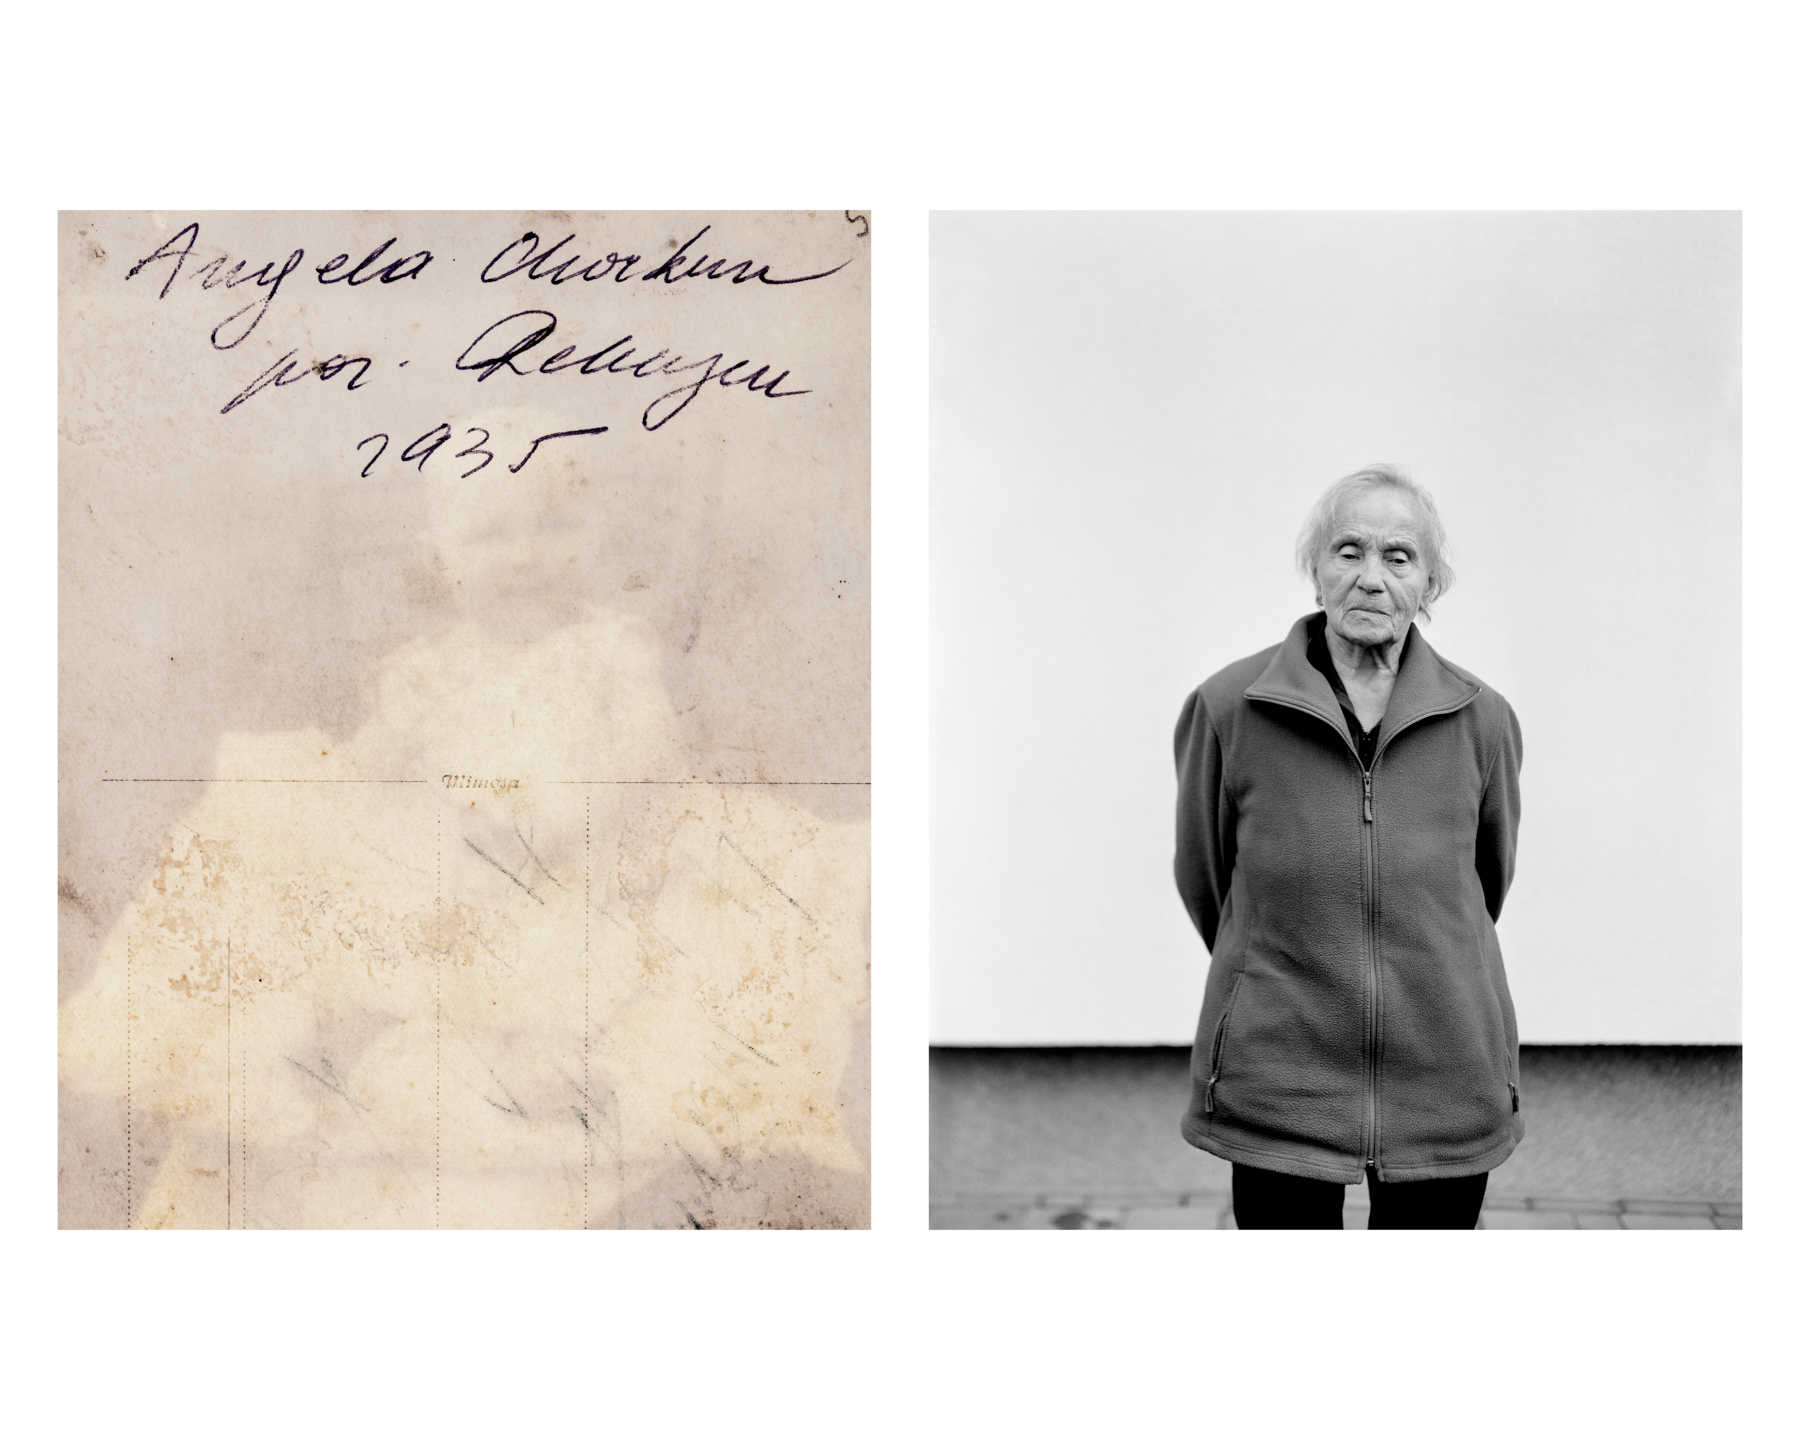 5
Angela Chorkun
por.
1935
Mimosa